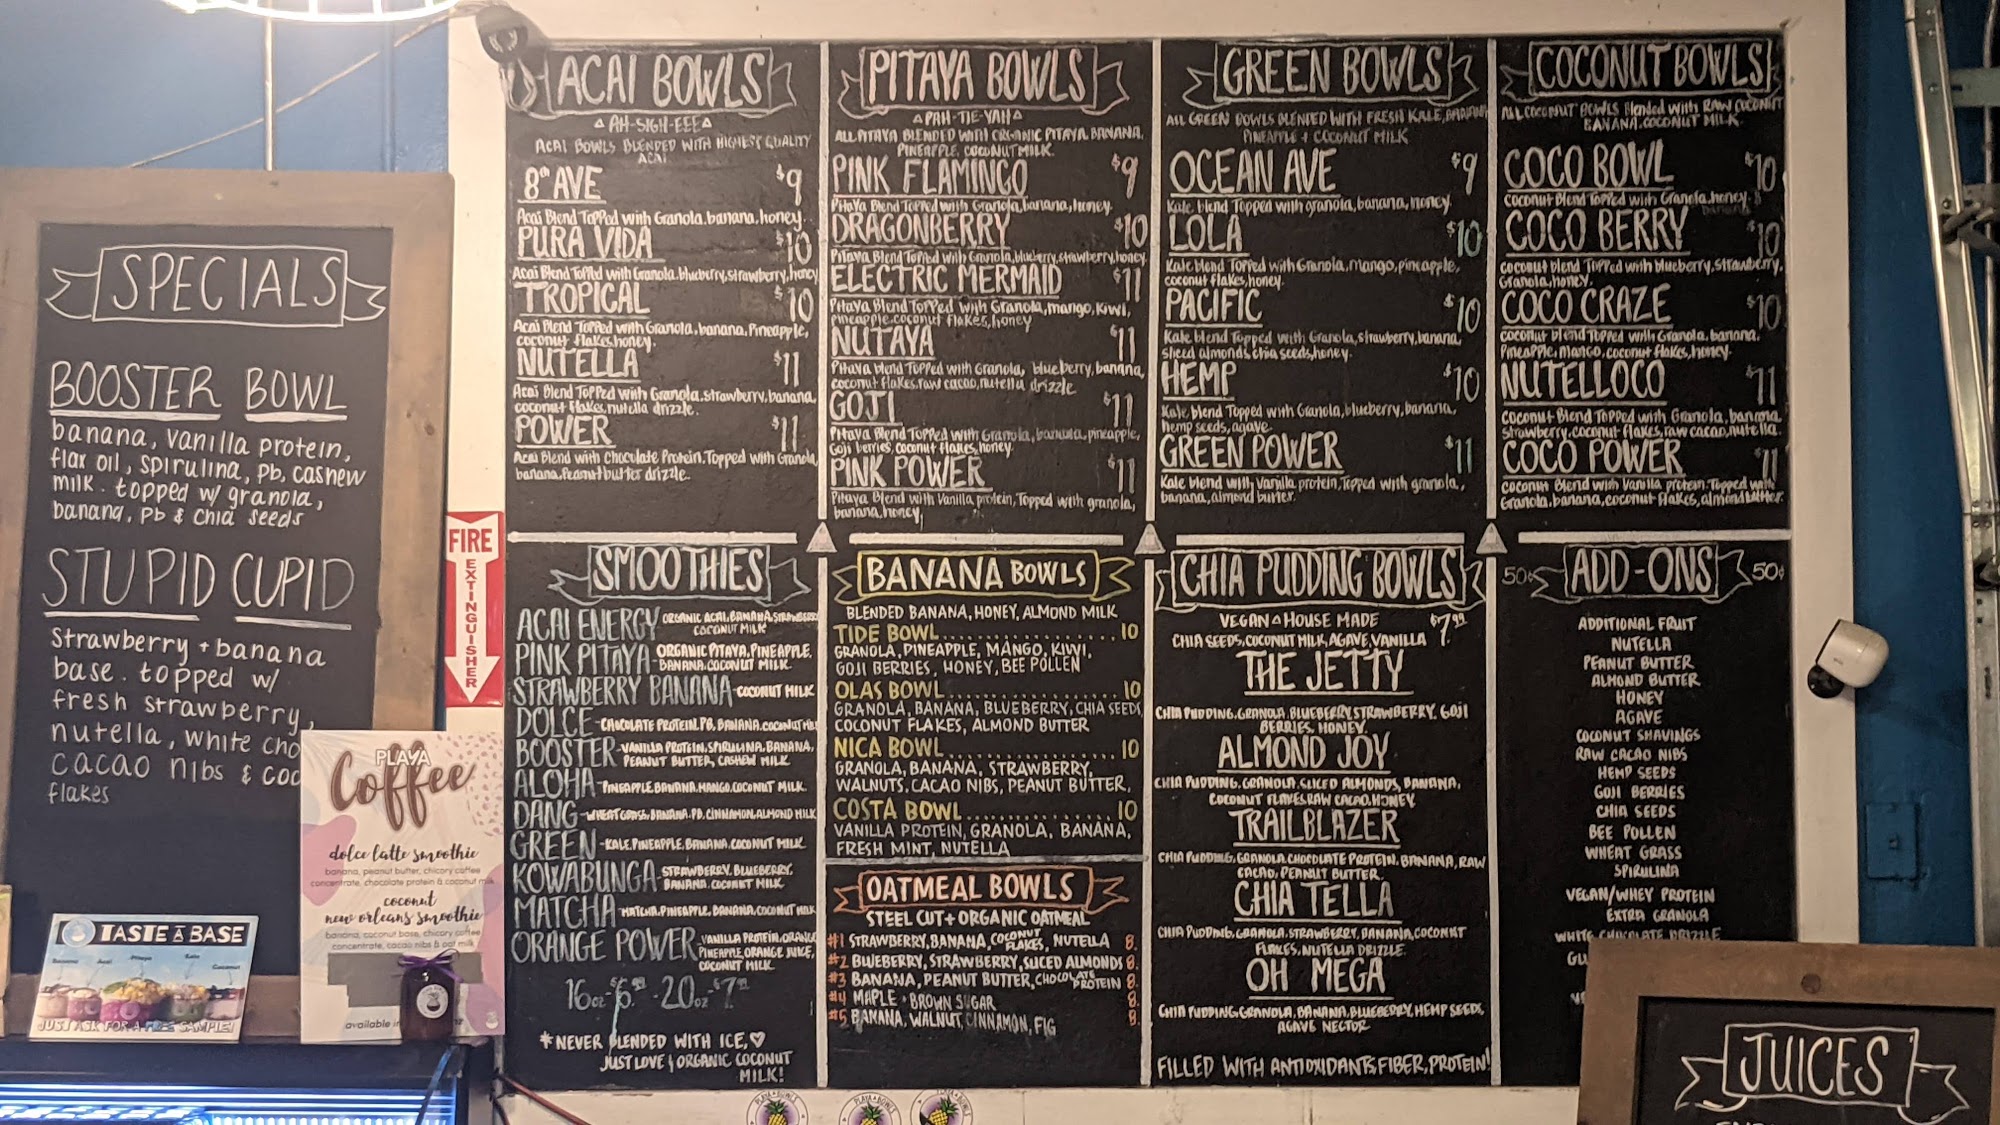 SPECIALS
BOOSTER BOWL
banana, vanilla protein,
flax oil, spirulina, pb, cashew
milk. topped w/ granola,
banana, pb & chia seeds
STUPID CUPID
strawberry + banana
base. topped w/
fresh strawberry,
nutella, white cho
cacao nibs & coc
flakes
FIRE
EXTINGUISHER
PLAYA
Coffee
dolce latte smoothie
banana, peanut butter, chicory coffee
concentrate, chocolate protein & coconut milk
coconut
new orleans smoothie
banana, coconut base, chicory coffee
concentrate, cacao nibs & oat milk
available in
TASTE A BASE
Banana Acai Pitaya Kale Coconut
JUST ASK FOR A FREE SAMPLE!
ACAI BOWLS
AH-SIGH-EEE
ACAI BOWLS BLENDED WITH HIGHEST QUALITY
ACAI
8th AVE $9
Acai Blend Topped with Granola, banana, honey.
PURA VIDA $10
Acai Blend Topped with Granola, blueberry, strawberry, honey
TROPICAL $10
Acai Blend Topped with Granola, banana, Pineapple,
coconut flakes, honey.
NUTELLA $11
Acai Blend Topped with Granola, strawberry, banana,
coconut flakes, nutella drizzle.
POWER $11
Acai Blend with Chocolate Protein. Topped with Granola,
banana, Peanut butter drizzle.
PITAYA BOWLS
PAH-TIE-YAH
ALL PITAYA BLENDED WITH ORGANIC PITAYA, BANANA,
PINEAPPLE, COCONUT MILK.
PINK FLAMINGO $9
Pitaya Blend Topped with Granola, banana, honey.
DRAGONBERRY $10
Pitaya Blend Topped with Granola, blueberry, strawberry, honey
ELECTRIC MERMAID $11
Pitaya Blend Topped with Granola, mango, Kiwi,
pineapple, coconut flakes, honey
NUTAYA $11
Pitaya blend Topped with Granola, blueberry, banana,
coconut flakes, raw cacao, nutella drizzle
GOJI $11
Pitaya Blend Topped with Granola, banana, pineapple,
Goji berries, coconut flakes, honey
PINK POWER $11
Pitaya Blend with Vanilla protein, Topped with granola,
banana, honey
GREEN BOWLS
ALL GREEN BOWLS BLENTED WITH FRESH KALE, BANANA
PINEAPPLE + COCONUT MILK
OCEAN AVE $9
Kale blend Topped with granola, banana, honey.
LOLA $10
Kale blend Topped with Granola, mango, pineapple,
coconut flakes, honey.
PACIFIC $10
Kale blend Topped with Granola, strawberry, banana,
sliced almonds, chia seeds, honey.
HEMP $10
Kale blend Topped with Granola, blueberry, banana,
hemp seeds, agave.
GREEN POWER $11
Kale blend with Vanilla protein, Topped with granola,
banana, almond butter.
COCONUT BOWLS
ALL COCONUT BOWLS Blended with RAW COCONUT
BANANA, COCONUT MILK
COCO BOWL $10
Coconut Blend Topped with Granola, honey &
banana
COCO BERRY $10
coconut blend Topped with blueberry, strawberry,
Granola, honey.
COCO CRAZE $10
coconut blend Topped with Granola, banana,
Pineapple, mango, coconut flakes, honey
NUTELLOCO $11
Coconut Blend Topped with Granola, banana,
strawberry, coconut flakes, raw cacao, nutella.
COCO POWER $11
coconut Blend with Vanilla protein Topped with
Granola, banana, coconut flakes, almond butter.
SMOOTHIES
ACAI ENERGY ORGANIC ACAI, BANANA, STRAWBERRY
COCONUT MILK
PINK PITAYA- ORGANIC PITAYA, PINEAPPLE,
BANANA, COCONUT MILK.
STRAWBERRY BANANA -COCONUT MILK
DOLCE -CHOCOLATE PROTEIN, PB, BANANA, COCONUT MILK
BOOSTER -VANILLA PROTEIN, SPIRULINA, BANANA,
PEANUT BUTTER, CASHEW MILK
ALOHA -PINEAPPLE, BANANA, MANGO, COCONUT MILK.
DANG -WHEAT GRASS, BANANA, PB, CINNAMON, ALMOND MILK
GREEN -KALE, PINEAPPLE, BANANA, COCONUT MILK
KOWABUNGA -STRAWBERRY, BLUEBERRY,
BANANA, COCONUT MILK
MATCHA -MATCHA, PINEAPPLE, BANANA, COCONUT MILK
ORANGE POWER -VANILLA PROTEIN, ORANGE
PINEAPPLE, ORANGE JUICE,
COCONUT MILK
16oz-$6.99 -20oz-$7.99
*NEVER BLENDED WITH ICE,♡
JUST LOVE & ORGANIC COCONUT
MILK!
BANANA BOWLS
BLENDED BANANA, HONEY, ALMOND MILK
TIDE BOWL 10
GRANOLA, PINEAPPLE, MANGO, KIWI,
GOJI BERRIES, HONEY, BEE POLLEN
OLAS BOWL 10
GRANOLA, BANANA, BLUEBERRY, CHIA SEEDS,
COCONUT FLAKES, ALMOND BUTTER
NICA BOWL 10
GRANOLA, BANANA, STRAWBERRY,
WALNUTS, CACAO NIBS, PEANUT BUTTER,
COSTA BOWL 10
VANILLA PROTEIN, GRANOLA, BANANA,
FRESH MINT, NUTELLA
OATMEAL BOWLS
STEEL CUT + ORGANIC OATMEAL
#1 STRAWBERRY, BANANA, COCONUT FLAKES, NUTELLA 8.
#2 BLUEBERRY, STRAWBERRY, SLICED ALMONDS 8.
#3 BANANA, PEANUT BUTTER, CHOCOLATE PROTEIN 8.
#4 MAPLE + BROWN SUGAR 8.
#5 BANANA, WALNUT, CINNAMON, FIG 8.
CHIA PUDDING BOWLS
VEGAN HOUSE MADE $7.99
CHIA SEEDS, COCONUT MILK, AGAVE, VANILLA
THE JETTY
CHIA PUDDING, GRANOLA, BLUEBERRY, STRAWBERRY, GOJI
BERRIES, HONEY.
ALMOND JOY
CHIA PUDDING, GRANOLA, SLICED ALMONDS, BANANA,
COCONUT FLAKES, RAW CACAO, HONEY
TRAILBLAZER
CHIA PUDDING, GRANOLA, CHOCOLATE PROTEIN, BANANA, RAW
CACAO, PEANUT BUTTER.
CHIA TELLA
CHIA PUDDING, GRANOLA, STRAWBERRY, BANANA, COCONUT
FLAKES, NUTELLA DRIZZLE.
OH MEGA
CHIA PUDDING, GRANOLA, BANANA, BLUEBERRY, HEMP SEEDS,
AGAVE NECTOR
FILLED WITH ANTIOXIDANTS, FIBER, PROTEIN!
50¢ ADD-ONS 50¢
ADDITIONAL FRUIT
NUTELLA
PEANUT BUTTER
ALMOND BUTTER
HONEY
AGAVE
COCONUT SHAVINGS
RAW CACAO NIBS
HEMP SEEDS
GOJI BERRIES
CHIA SEEDS
BEE POLLEN
WHEAT GRASS
SPIRULINA
VEGAN/WHEY PROTEIN
EXTRA GRANOLA
WHITE CHOCOLATE DRIZZLE
JUICES
PLAYA BOWLS
PLAYA BOWLS
PLAYA BOWLS